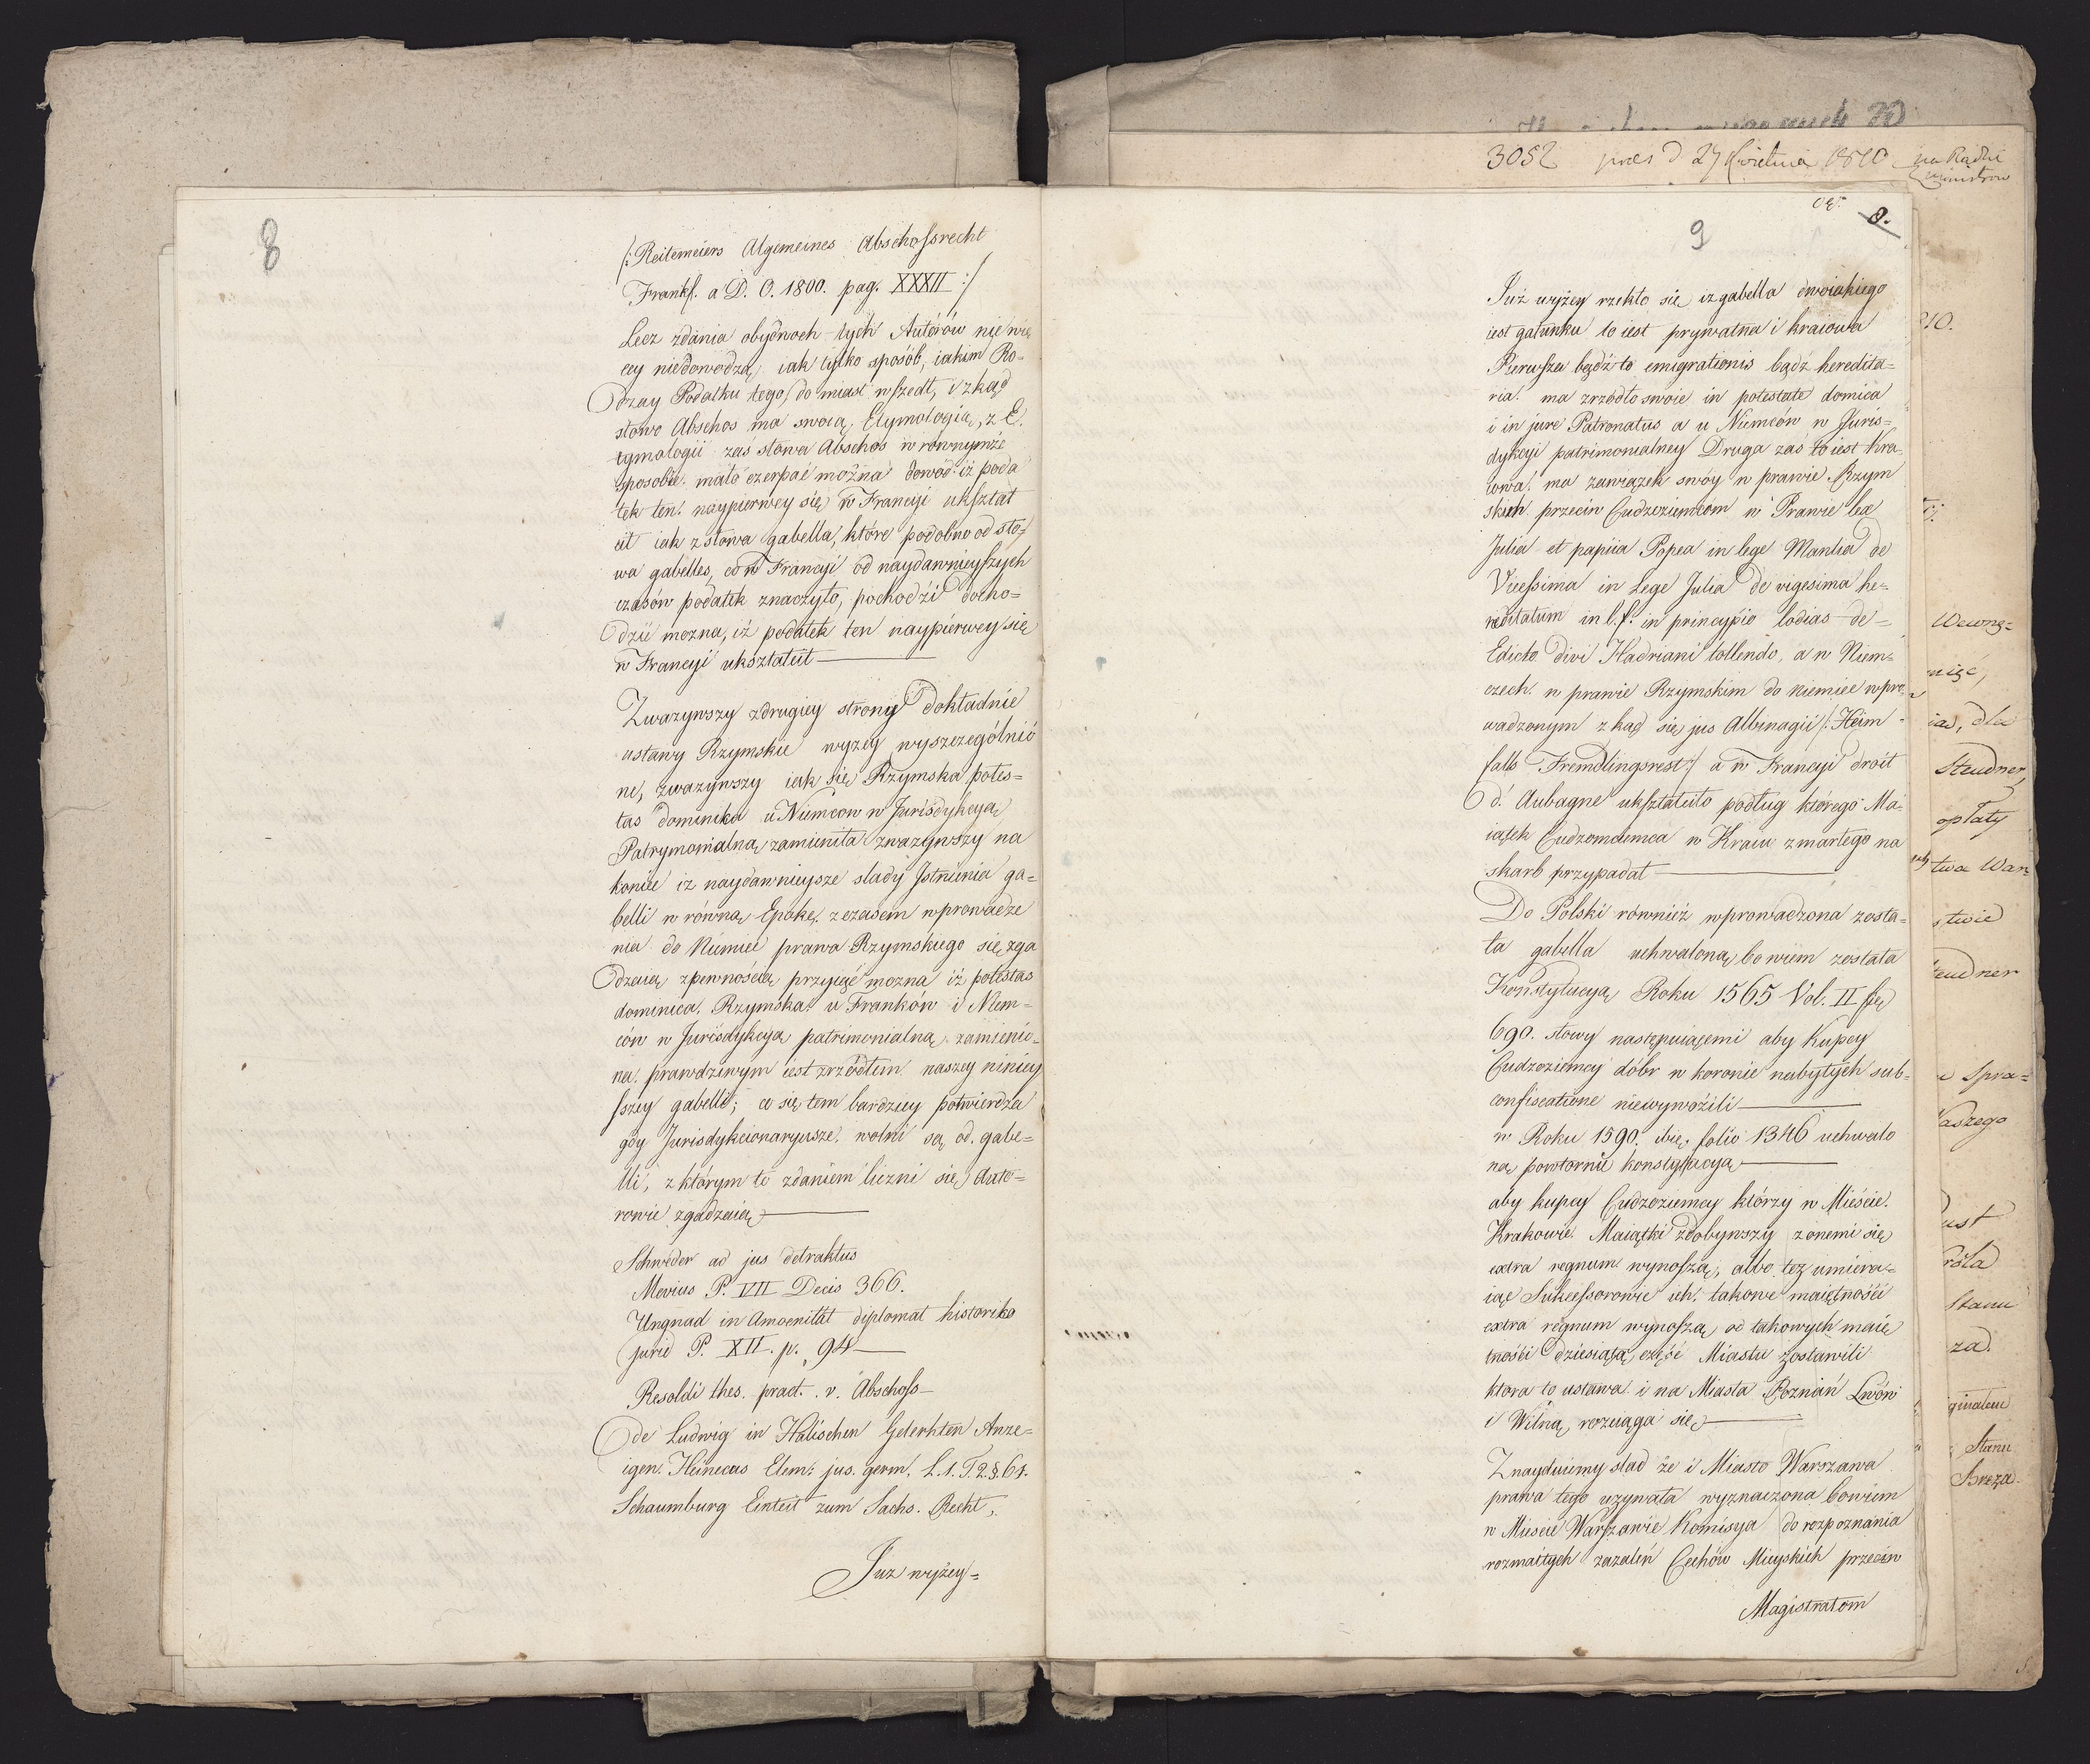 8
/: Reitemeiers Algemeines Abschofsrecht
Frankf. a D. O. 1800. pag. XXXII :/
Lecz zdania obydwoch tych Autorów nie wię
cey niedowodzą, iak tylko sposób, iakim Ro-
dzay Podatku tego do miast wszedł, i zkąd
słowo Abschos ma swoią Etymologią, z E.
tymologii zaś słowa Abschos w równymże
sposobie mało czerpać można dowód: iż poda
tek ten naypierwey się w Francyi uksztat
cił iak z słowa gabella, które podobno od sło-
wa gabelles, co w Francyi od naydawnieyszych
czasów podatek znaczyło, pochodzi docho-
dzić mozna, iż podatek ten naypierwey się
w Francyi ukształcił
Zwazywszy zdrugiey strony dokładnie
ustawy Rzymskie wyzey wyszczególnio
ne, zwazywszy iak się Rzymska potes-
tas dominica u Niemcow w Jurisdykcyą
Patrymonialną zamieniła zwazywszy na
koniec iz naydawnieysze slady Istnienia ga-
belli w równą Epokę z czasem wprowadze
nia do Niemiec prawa Rzymskiego się zga
dzaią zpewnością przyiąć mozna iż potestas
dominica Rzymska u Franków i Niem-
ców w Jurisdykcyą patrimonialną zamienio-
na prawdziwym iest zrzódłem naszey niniey
szey gabelli; co się tem bardziey potwierdza
gdy Jurisdykcionaryusze wolni są od gabe-
lli, z którym to zdaniem liczni się Auto-
rowie zgadzaią
Schweder ad jus detraktus
Mevius P. VII Decis 366.
Ungnad in Amoenität diplomat historiko
jurid P. XII. p. 94
Besoldi thes. pract. v. Abschofs
de Ludwig in Halischen Gelerhten Anze-
igen. Heineccus Elem: jus. germ. L.1. T.2. §. 61.
Schaumburg Einteit zum Sachs. Recht,
Juz wyżey-
3052 pres d 27 Kwietnia 1810 na Radzie
ministrow
9
Już wyżey rzekło się iz gabella dwoiakiego
iest gatunku to iest prywatna i kraiowa
Pierwsza bądź to emigrationis bądź heredita-
ria ma zrzódło swoie in potestate domica
i in jure Patronatus a u Niemców w Juris-
dykcyi patrimonialney Druga zas to iest Kra
iowa ma zawiązek swóy w prawie Rzym
skich przeciw Cudzoziemcom w Prawie lex
Julia et papiia Popea in lege Manlia de
Vicessima in Lege Julia de vigesima he-
reditatum in l.f. in princypio lodias de-
Edicto divi Hadriani tollendo, a w Niem-
czech w prawie Rzymskim do niemiec wpro
wadzonym z kąd się jus Albinagii /: Heim-
falls Fremdlingsrest :/ a w Francyi droit
d' Aubagne ukształciło podług którego Ma-
iątek Cudzoziemca w Kraiu zmarłego na
skarb przypadał
Do Polski również wprowadzona zosta-
ła gabella uchwaloną bowiem została
Konstytucyą Roku 1565 Vol. II
690. słowy następuiącemi aby Kupcy
Cudzoziemcy dóbr w koronie nabytych sub-
confiscatione niewywozili
w Roku 1590. folio 1346 uchwalo
ną powtornie konstytucyą
aby kupcy Cudzoziemcy którzy w Mieście
Krakowie Maiątki zdobywszy z onemi się
extra regnum wynoszą, albo tez umiera-
iąc Sukcessorowie ich takowe maiętności
extra regnum wynoszą od takowych maię
tności dziesiątą część Miastu zostawili
ktora to ustawa i na Miasta Poznań Lwów
i Wilną rozciąga się
Znayduiemy slad że i Miasto Warszawa
prawa tego uzywała wyznaczona bowiem
w Miescie Warszawie Komisya do rozpoznania
rozmaitych zazaleń Cechów Mieyskich przeciw
Magistratom
10.
Wewnę-
ias, dla
Steudner,
opłaty
twa War
stwie
eudner
Spra-
aszego
ust
róla
Stanu
za.
ginałem
Stanu
Breza